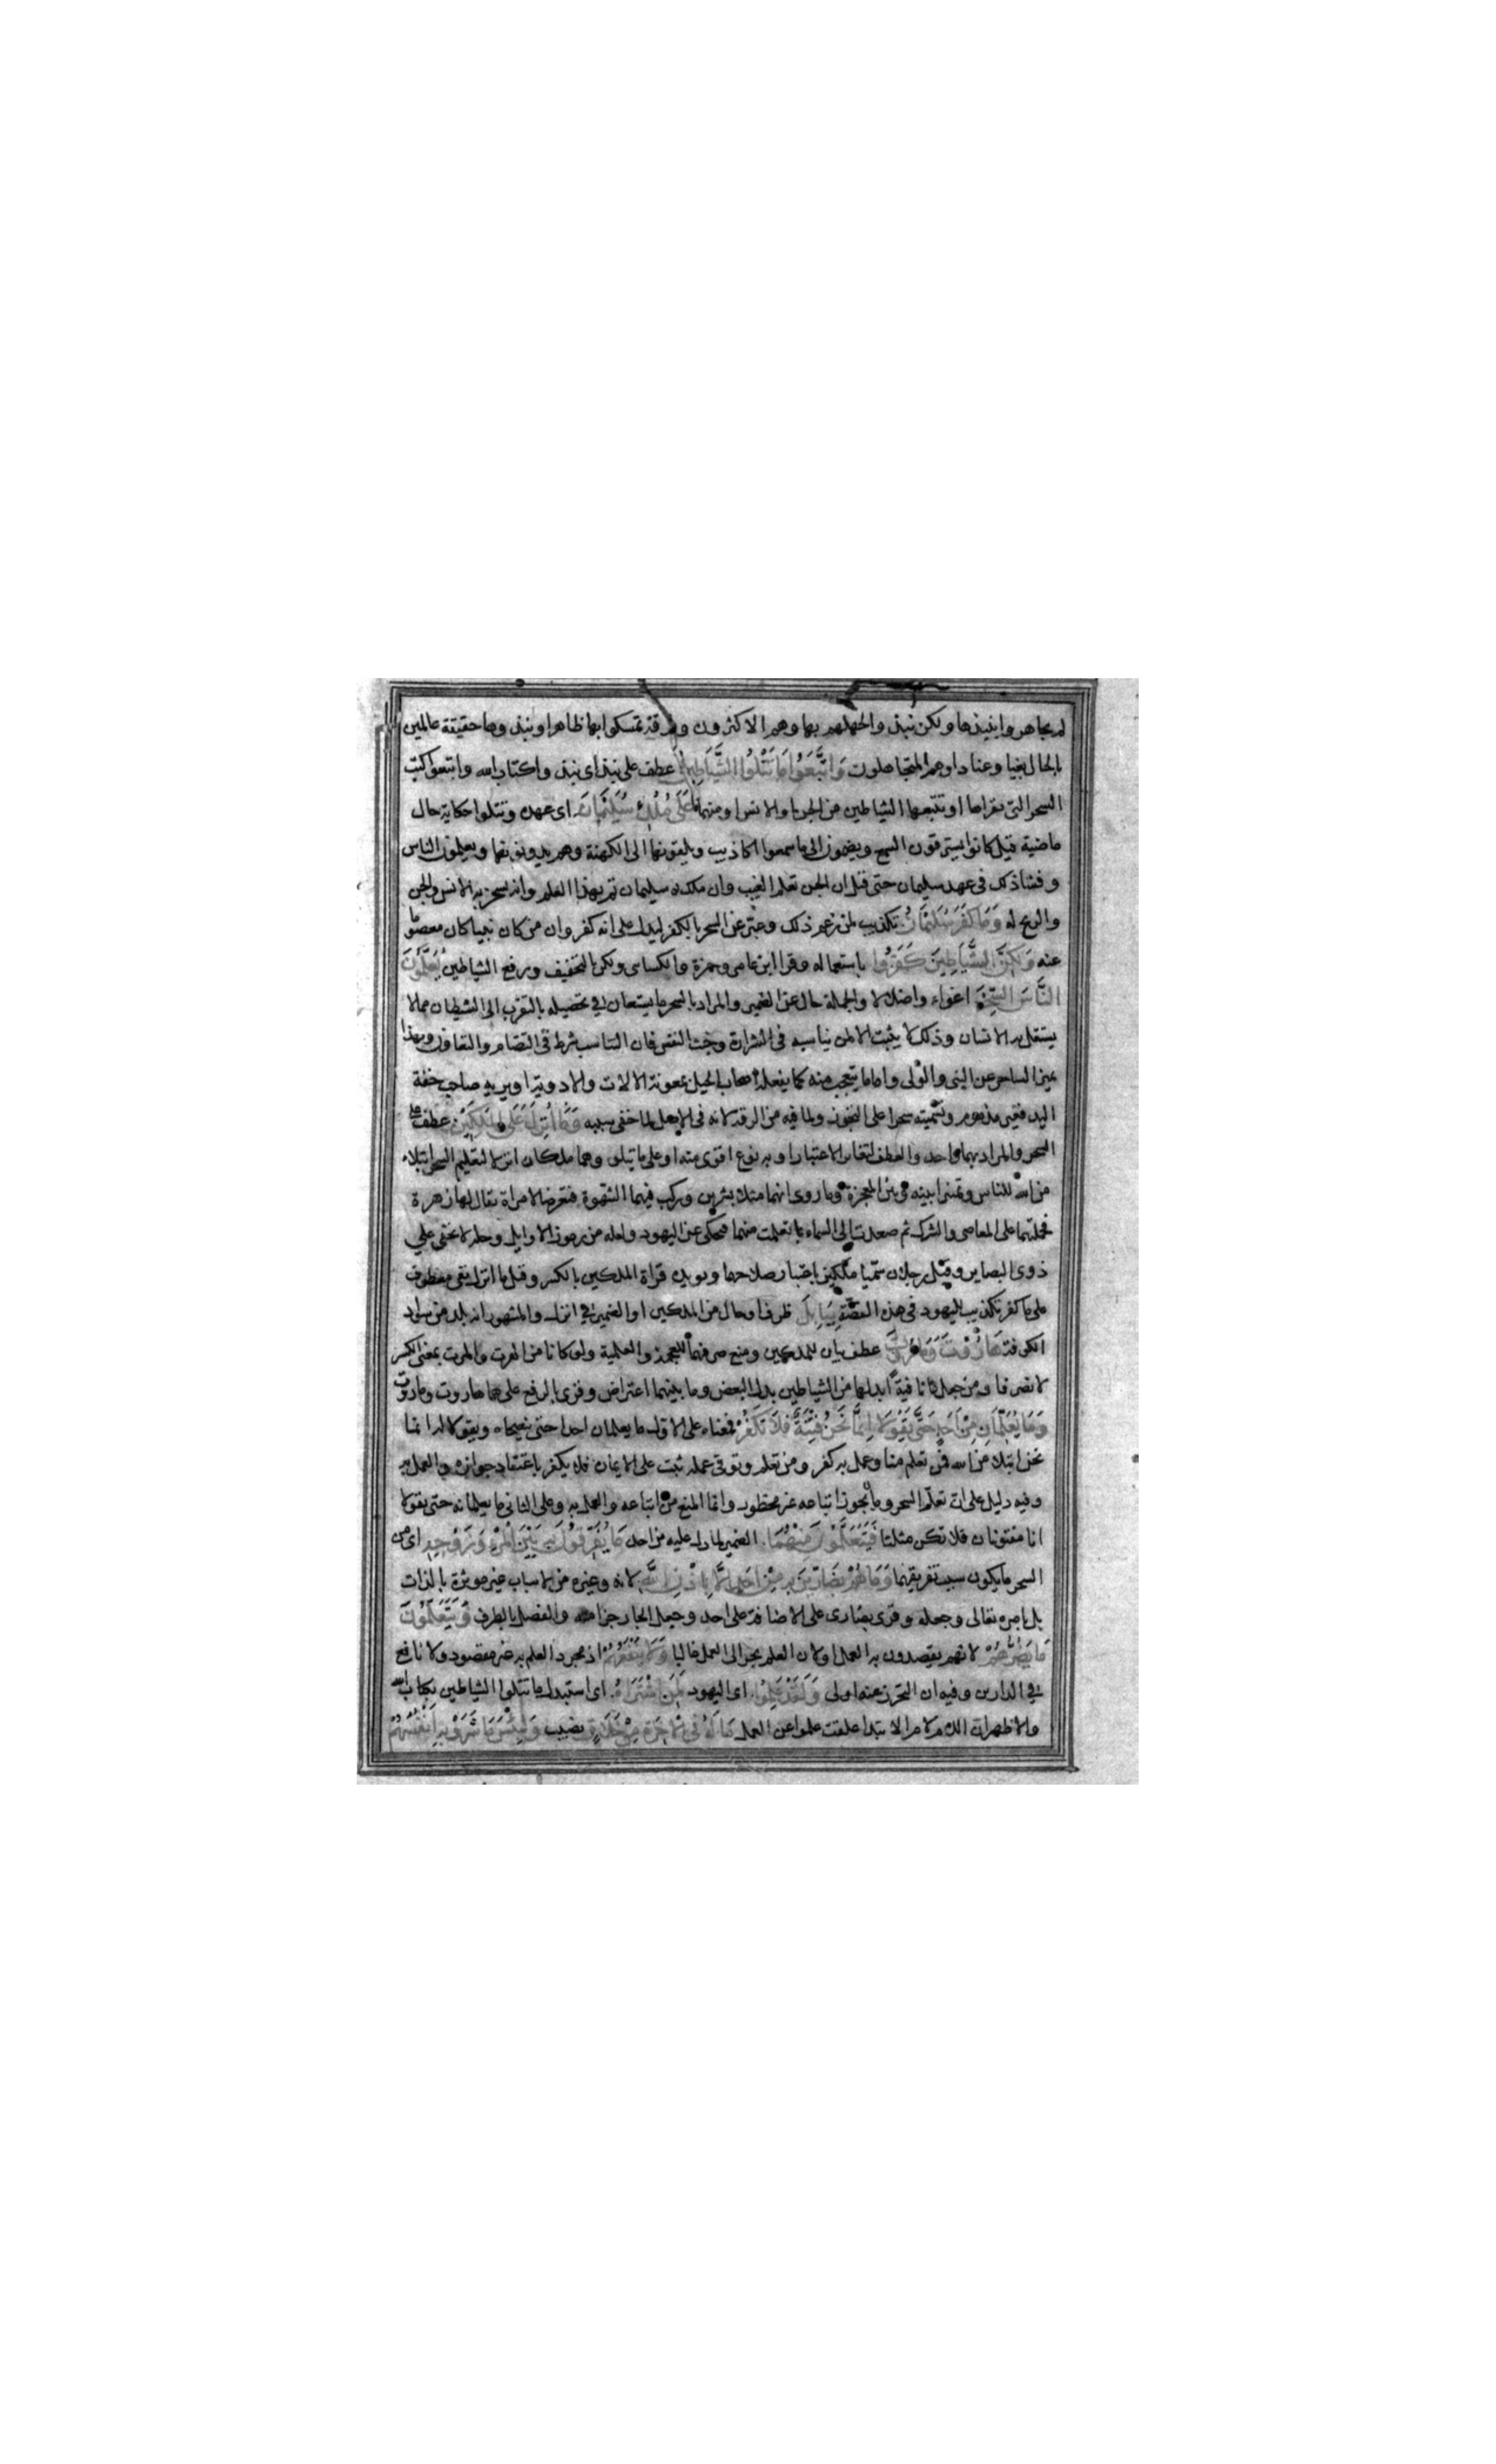 لم يجاهروا بنبذها ولكن نبذوا لجهلهم بها وهم الاكثرون وفرقة تمسكوا بها ظاهرا ونبذوها حقيقة عالمين
بالحال بغيا وعنادا وهم المتجاهلون وَاتَّبَعُوا مَا تَتْلُوا الشَّيَاطِينُ عطف على نبذ اى نبذوا كتاب الله واتبعوا كتب
السحر التى تقراها او تتبعها الشياطين من الجن او الانس او منهما عَلَى مُلْكِ سُلَيْمَانَ اى عهده وتتلوا حكاية حال
ماضية قيل كانوا يسترقون السمع ويضمون الى ما سمعوا اكاذيب ويلقونها الى الكهنة وهم يدونونها ويعلمون الناس
وفشا ذلك فى عهد سليمان حتى قيل ان الجن تعلم الغيب وان ملك سليمان تم بهذا العلم وانه سخر به الانس والجن
والريح له وَمَا كَفَرَ سُلَيْمَانُ تكذيب لمن زعم ذلك وعبر عن السحر بالكفر ليدل على انه كفر وان من كان نبيا كان معصوما
عنه وَلَكِنَّ الشَّيَاطِينَ كَفَرُوا باستعماله وقرا ابن عامر وحمزة والكسائ ولكن بالتخفيف ورفع الشياطين يُعَلِّمُونَ
النَّاسَ السِّحْرَ اغواء واضلالا والجملة حال عن الضمير والمراد بالسحر ما يستعان فى تحصيله بالتقرب الى الشيطان مما لا
يستقل به الانسان وذلك لا يثبت الا لمن يناسبه فى الشرارة وخبث النفس فان التناسب شرط فى التضام والتعاون وبهذا
يميز الساحر عن النبى والولى واما ما يتعجب منه كما يفعله اصحاب الحيل بمعونة الالات والادوية او يريه صاحب خفة
اليد فغير مذموم وتسميته سحرا على التجوز ولما فيه من الدقة لانه فى الاصل لما خفى سببه وَمَا أُنْزِلَ عَلَى الْمَلَكَيْنِ عطف على
السحر والمراد بهما واحد والعطف لتغاير الاعتبار او به نوع اقوى منه او على ما تتلو وهما ملكان انزلا لتعليم السحر ابتلاء
من الله للناس وتميزا بينه وبين المعجزة وما روى انهما مثلا بشرين وركب فيهما الشهوة فتعرضا لامراة يقال لها زهرة
فحملتهما على المعاصى والشرك ثم صعدت الى السماء بما تعلمت منهما فمحكى عن اليهود ولعله من رموز الاوايل وحله لا يخفى على
ذوى البصاير وقيل رجلان سميا ملكين باعتبار صلاحهما ويويده قراة الملكين بالكسر وقيل ما انزل نفى معطوف
على ما كفر تكذيب لليهود فى هذه القصة بِبَابِلَ ظرف او حال من الملكين او الضمير فى انزل والمشهور انه بلد من سواد
الكوفة هَارُوتَ وَمَارُوتَ عطف بيان للملكين ومنع صرفهما للعجمة والعلمية ولو كانا من الهرت والمرت بمعنى الكسر
لانصرفا ومن جعل ما نافية ابدلهما من الشياطين بدل البعض وما بينهما اعتراض وقرى بالرفع على هما هاروت وماروت
وَمَا يُعَلِّمَانِ مِنْ أَحَدٍ حَتَّى يَقُولَا إِنَّمَا نَحْنُ فِتْنَةٌ فَلَا تَكْفُرْ فمعناه على الاول ما يعلمان احدا حتى ينصحاه ويقولا له انما
نحن ابتلا من الله فمن تعلم منا وعمل به كفر ومن تعلم وتوقى عمله ثبت على الايمان فلا يكفر باعتقاد جوازه والعمل به
وفيه دليل على ان تعلم السحر وما لا يجوز اتباعه غير محظور وانما المنع من اتباعه والعمل به وعلى الثانى ما يعلمانه حتى يقولا
انا مفتونان فلا تكن مثلنا فَيَتَعَلَّمُونَ مِنْهُمَا الضمير لما دل عليه من احد مَا يُفَرِّقُونَ بِهِ بَيْنَ الْمَرْءِ وَزَوْجِهِ اى من
السحر ما يكون سبب تفريقهما وَمَا هُمْ بِضَارِّينَ بِهِ مِنْ أَحَدٍ إِلَّا بِإِذْنِ اللَّهِ لانه وغيره من الاسباب غير موثرة بالذات
بل بامره تعالى وجعله وقرى بضارى على الاضافة على احد وجعل الجار جزا منه والفصل بالظرف وَيَتَعَلَّمُونَ
مَا يَضُرُّهُمْ لانهم يقصدون به العمل او لان العلم يجر الى العمل غالبا وَلَا يَنْفَعُهُمْ اذ مجرد العلم به غير مقصود ولا نافع
فى الدارين وفيه ان التحرز عنه اولى وَلَقَدْ عَلِمُوا اى اليهود لَمَنِ اشْتَرَاهُ اى استبدل ما تتلوا الشياطين بكتاب الله
والاظهر ان اللام لام الابتدا علقت علموا عن العمل مَا لَهُ فِي الْآخِرَةِ مِنْ خَلَاقٍ نصيب وَلَبِئْسَ مَا شَرَوْا بِهِ أَنْفُسَهُمْ